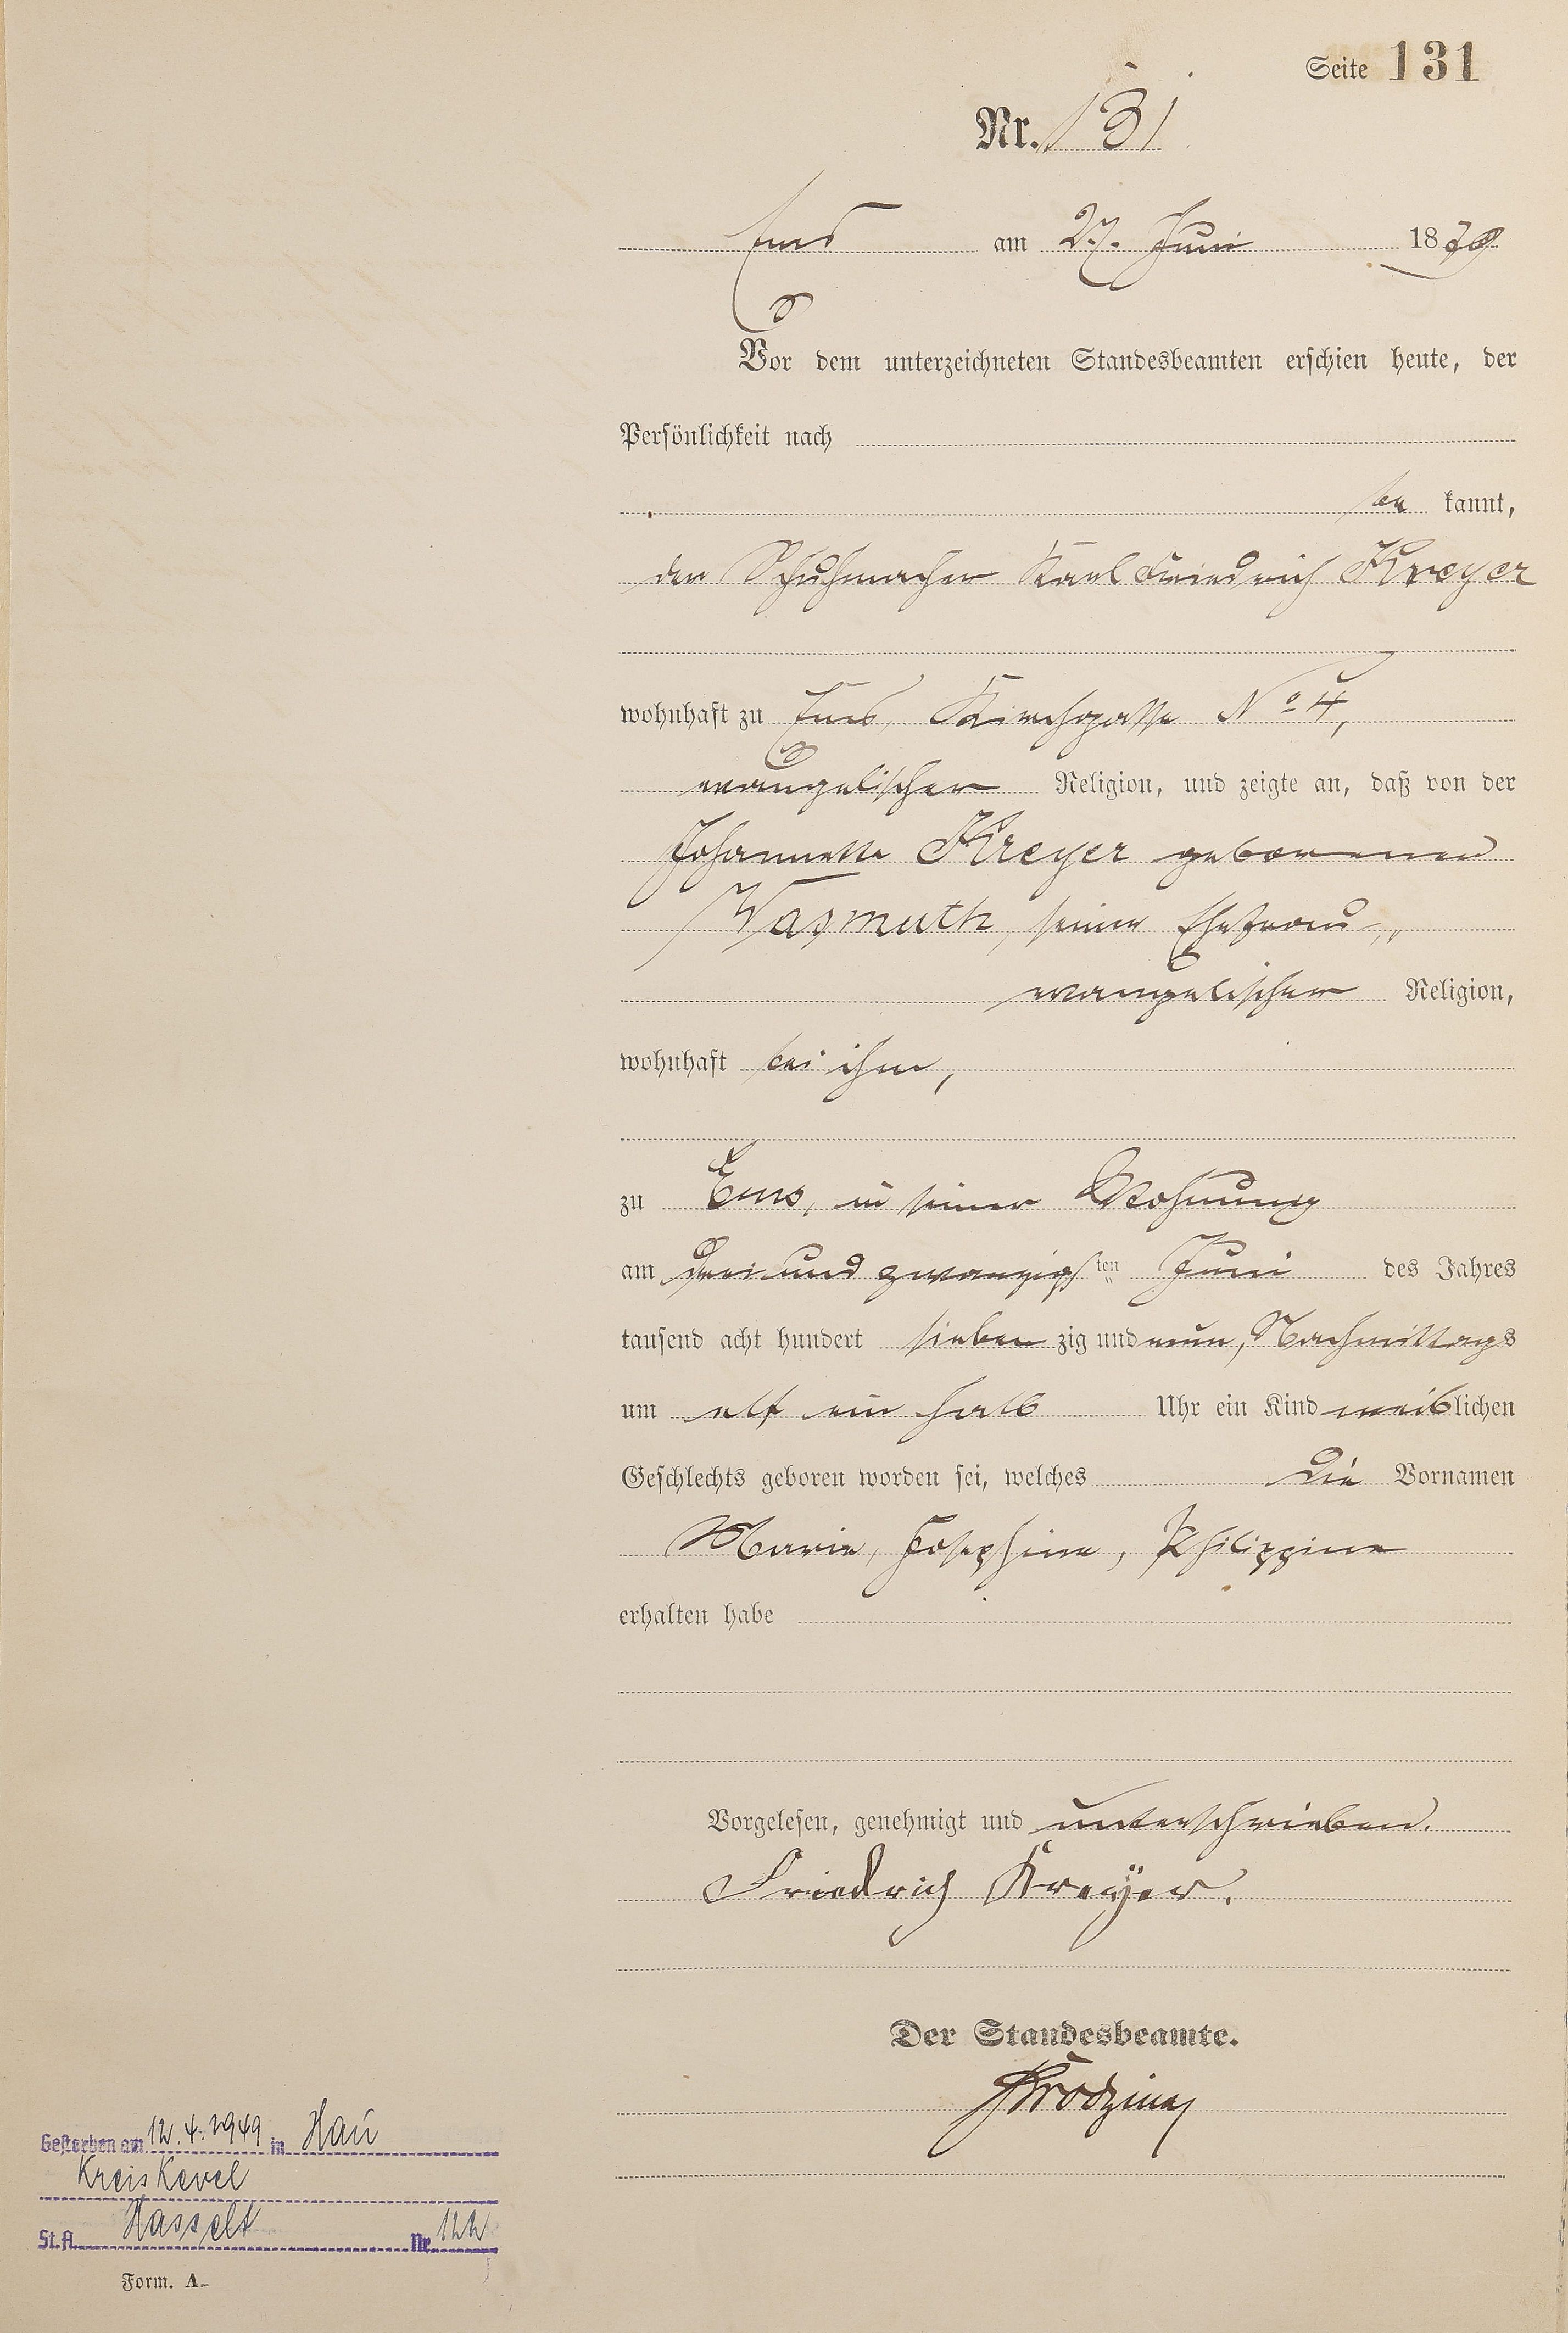 Seite 131
Nr. 131
Ems am 27. Juni 1879
Vor dem unterzeichneten Standesbeamten erschien heute, der
Persönlichkeit nach
be kannt,
der Schuhmacher Karl Friedrich Kreyer
wohnhaft zu Ems, Kirchgasse No 4,
evangelischer Religion, und zeigte an, daß von der
Johannette Kreyer geborenen
Wasmuth, seiner Ehefrau,
evangelischer Religion,
wohnhaft bei ihm,
zu Ems, in seiner Wohnung
am drei und zwanzigsten Juni des Jahres
tausend acht hundert sieben zig und neun, Nachmittags
um elf ein halb Uhr ein Kind weiblichen
Geschlechts geboren worden sei, welches die Vornamen
Marie, Josephine, Philippine
erhalten habe
Vorgelesen, genehmigt und unterschrieben.
Friedrich Kreyer.
Der Standesbeamte.
Gestorben am 12.4.1949 in Hau
Kreis Kevel
St.A. Hasselt Nr. 122
Form. A.